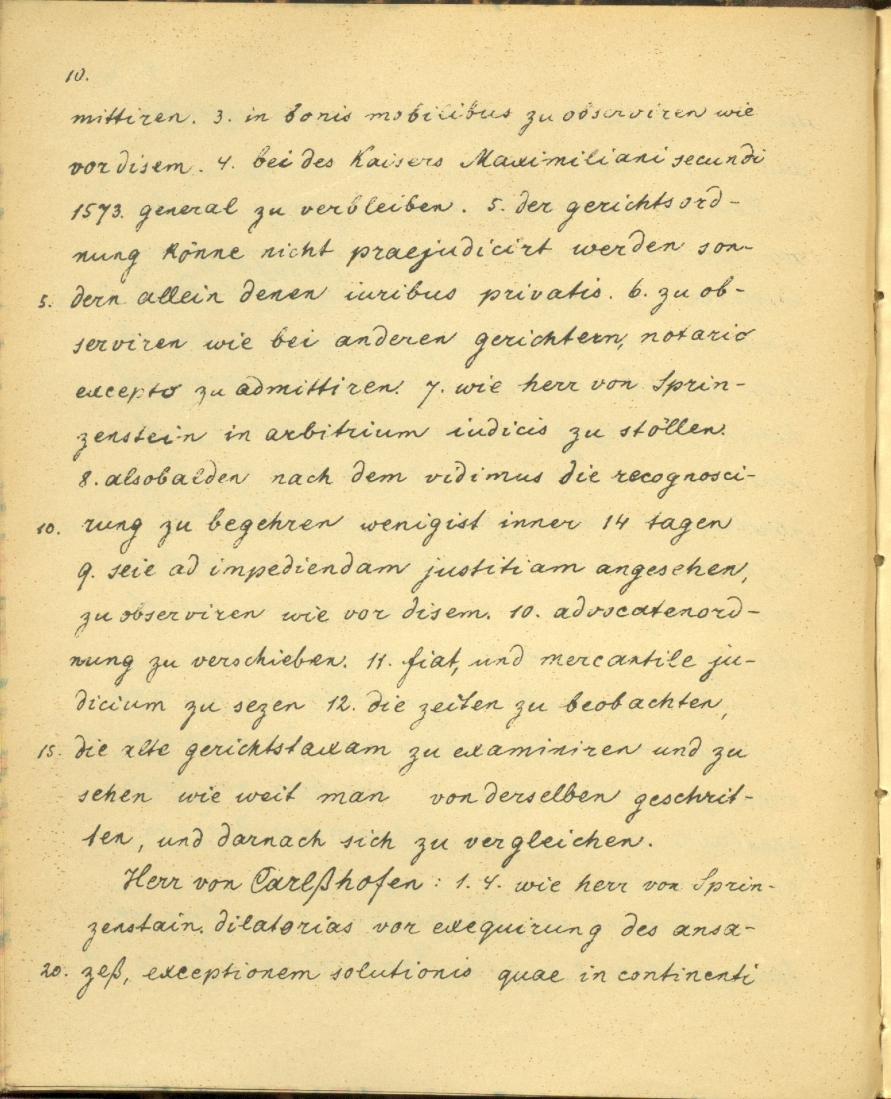 10.
mittiren. 3. in bonis mobilibus zu observiren wie
vor disem. 4. bei des Kaisers Maximiliani secundi
1573. general zu verbleiben. 5. der gerichtsord-
nung könne nicht praejudicirt werden son-
5. dern allein denen iuribus privatis. 6. zu ob-
serviren wie bei anderen gerichtern, notario
excepto zu admittiren. 7. wie herr von Sprin-
zenstein in arbitrium iudicis zu stöllen.
8. alsobalden nach dem vidimus die recognosci-
10. rung zu begehren wenigist inner 14 tagen
9. seie ad impediendam justitiam angesehen,
zu observiren wie vor disem. 10. advocatenord-
nung zu verschieben. 11. fiat, und mercantile ju-
dicium zu sezen 12. die zeiten zu beobachten,
15. die alte gerichtstaxam zu examiniren und zu
sehen wie weit man von derselben geschrit-
ten, und darnach sich zu vergleichen.
Herr von Carlßhofen: 1. 4. wie herr von Sprin-
zenstain. dilatorias vor exequirung des ansa-
20. zeß, exceptionem solutionis quae in continenti